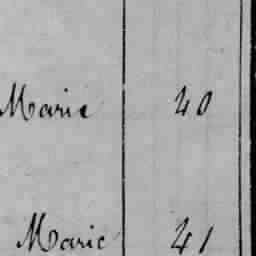 Marie 40
Marie 41